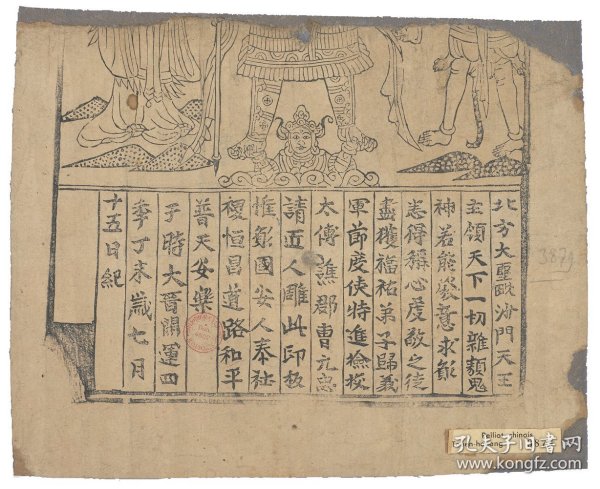 北方大聖毗沙門天王
主領天下一切雜類鬼
神若能發意求願
悉得稱心虔敬之徒
盡獲福祐弟子歸義
軍節度使特進檢校
太傅譙郡曹元忠
請匠人雕此印板
惟願國安人泰社
稷恒昌道路和平
普天安樂
于時大晉開運四
年丁未歲七月
十五日紀
387g
Pelliot chinois
孔夫子旧书网
www.kongfz.com